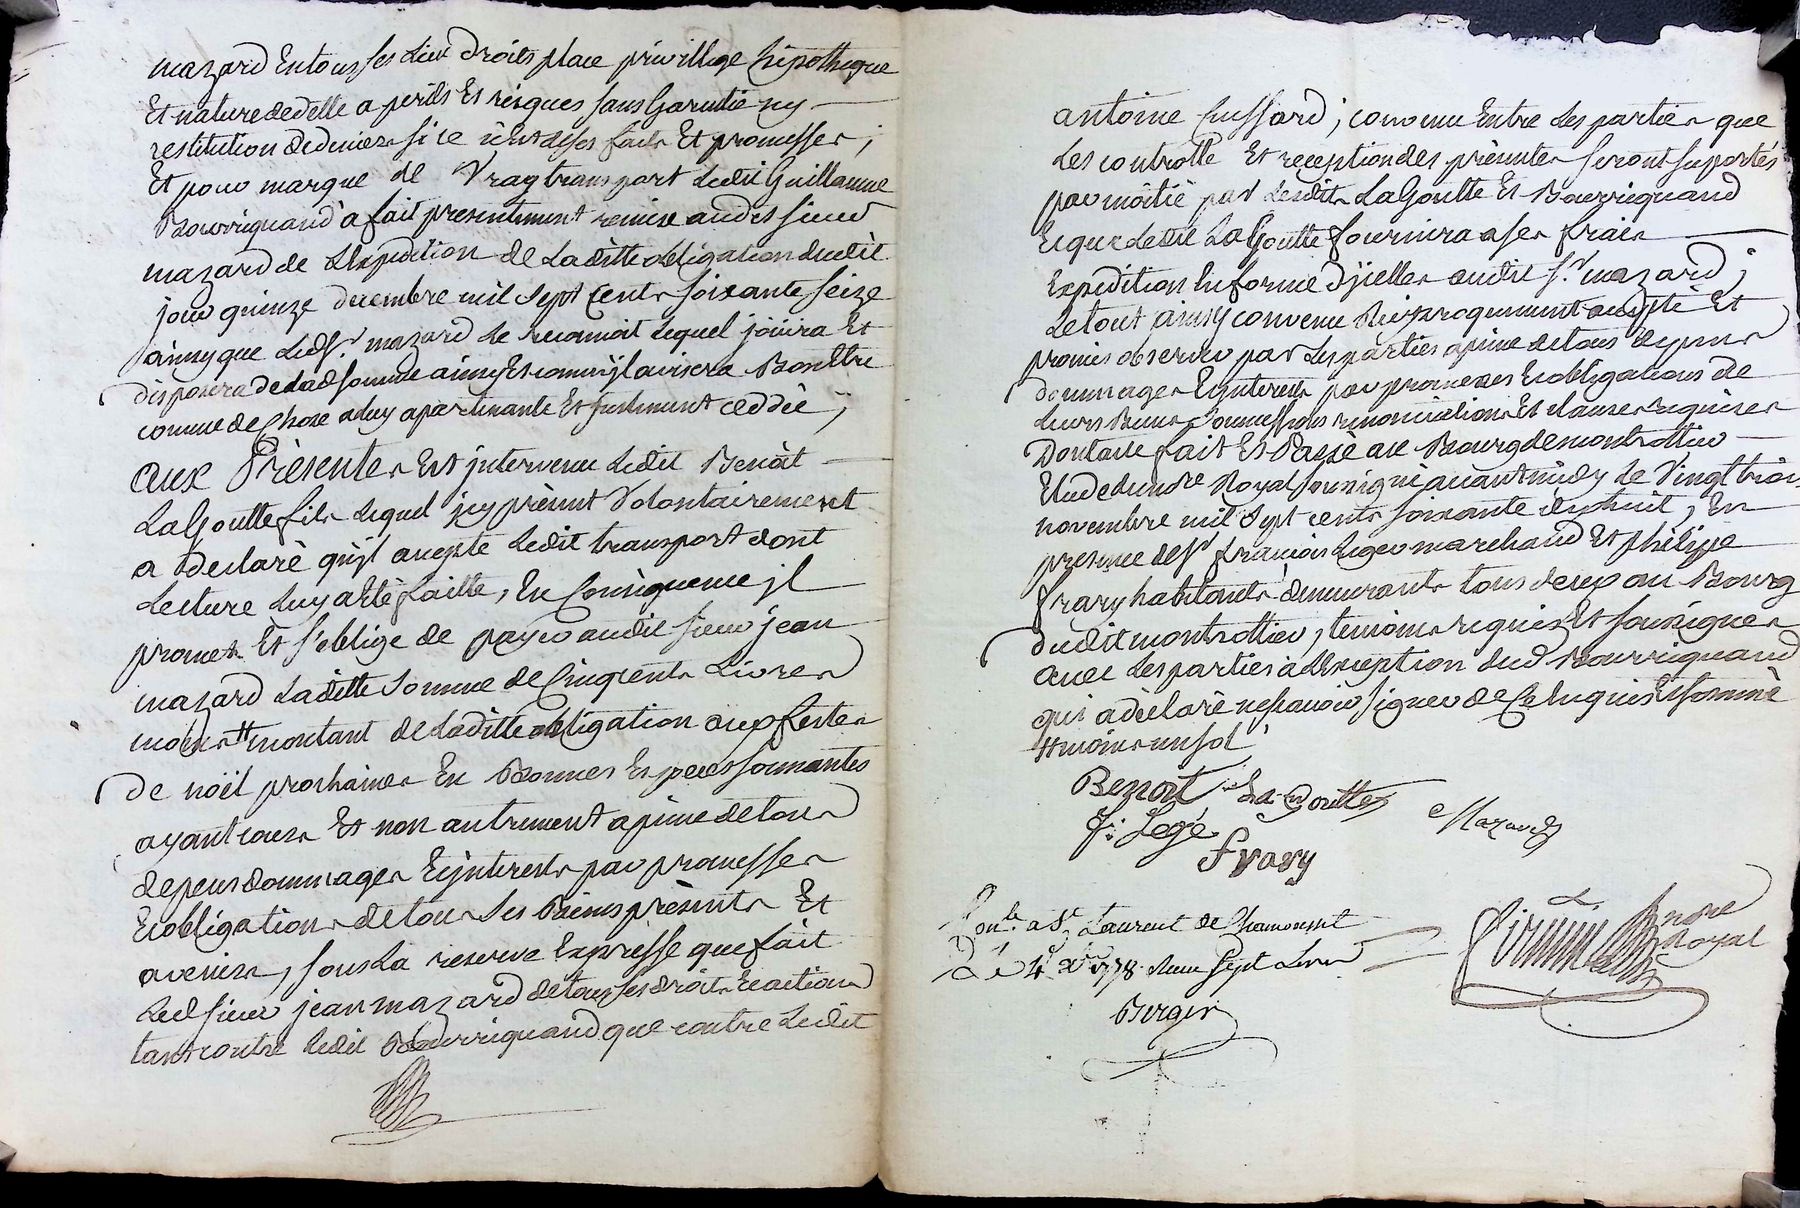 mazard En tous ses Lieu droits place privillege hipotheque
Et nature de delle a perils Et risques sans Garantie ny
restitution de deniers si ce n'est de ses faits Et promesses ;
Et pour marque de Vray transport Ledit Guillaume
Bourriquand a fait presentement remise audit sieur
mazard de L'Expedition de La ditte obligation dudit
jour quinze decembre mil sept Cents soixante seize
ainsy que Led Sr. mazard Le reconnoit Lequel jouira Et
disposera de Lad somme ainsy Et comm'jl avisera Bon Etre
comme de Chose a luy apartenante Et justement ceddée ;
aux Presentes Est jntervenu Ledit Benoit
LaGoutte fils Lequel jcy présent Volontairement
a declaré qu'jl accepte Ledit transport dont
Lecture Luy a Eté faitte, En Conséquence jl
promet Et s'oblige de payer audit sieur jean
mazard Laditte Somme de Cinq cents Livres
moins # montant de Laditte obligation aux festes
de noël prochaines En Bonnes Especes sonnantes
ayant cours Et non autrement a peine de tous
depens dommages Et jnterests par promesses
Et obligations de tous Ses Biens présents Et
avenirs, sous La reserve Expresse que fait
Led sieur jean mazard de tous ses droits Et actions
tant contre Ledit Bourriquand que contre Ledit
antoine Cussard ; convenu Entre Les parties que
Les controlle Et reception des présentes seront suportés
par moitié par Lesdits LaGoutte Et Bourriquand
Et que Ledit LaGoutte fournira a ses frais
Expedition En forme d'jcelles audit Sr. mazard ;
Le tout ainsy convenu Reciproquement accepté Et
promis observer par Les parties a peine de tous depens
dommages Et jnterests par promesses Et obligations de
Leurs Biens Soumissions renonciations Et clauses requises
Dont acte fait Et Passé au Bourg de montrottier
Etude du nore Royal soussigné avant midy Le Vingt trois
novembre mil sept cents soixante dixhuit, En
presence de Sr françois Leger marchand Et philippe
frary habitants demeurants tous deux au Bourg
dudit montrottier, temoins requis Et soussignés
avec Les parties à L'Exception dud Bourriquand
qui a déclaré ne sçavoir signer de Ce Enquis Et sommé
# moins un sol
Benoit La Goutte
Mazard
f: Legé
frary
Conlé a St. Laurent de Chamousset
Le 4 Xbre 1778. Reçu sept Livres
Berger
nore
Royal